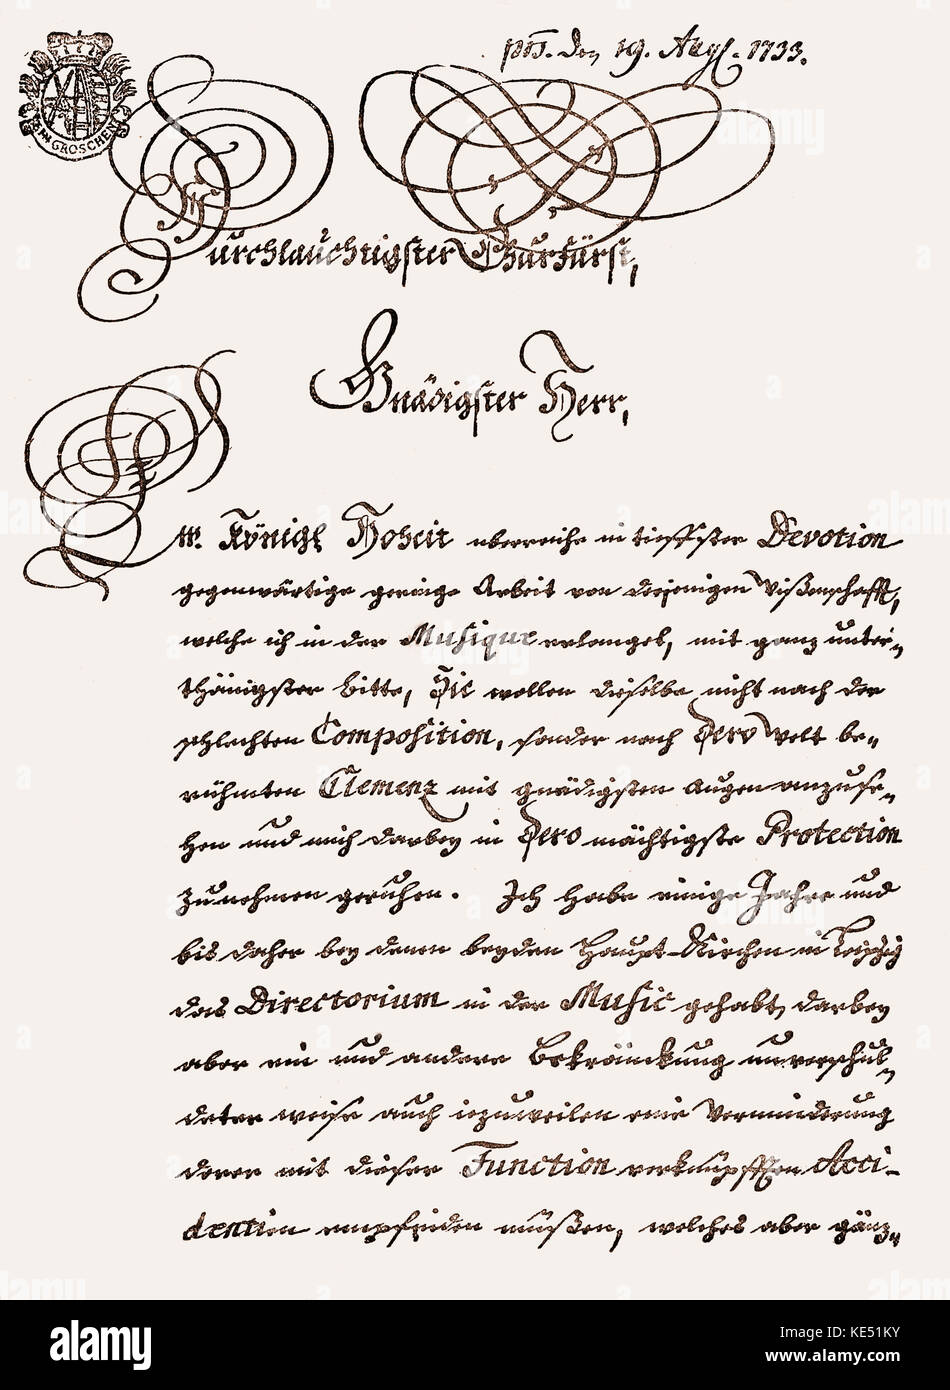 pts. den 19. Aug. 1733.
GROSCHEN
Durchlauchtigster Churfürst,
Gnädigster Herr,
Ew. Königl Hoheit überreiche in tieffster Devotion
gegenwärtige geringe Arbeit von derjenigen Wißenschafft,
welche ich in der Musique erlanget, mit ganz unter-
thänigster bitte, Sie wollen dieselbe nicht nach der
schlechten Composition, sonder nach Dero Welt be-
rühmten Clemenz mit gnädigsten Augen anzuse-
hen und mich darbey in Dero mächtigste Protection
zunehmen geruhen. Ich habe einige Jahre und
bis daher bey denen beyden Haupt-Kirchen in Leipzig
das Directorium in der Music gehabt, darbey
aber ein und andere Bekränckung unverschul-
deter weise auch iezuweilen eine Verminderung
derer mit dieser Function verknüpfften Acci-
dentien empfinden müßen, welches aber gänz-
alamy
Image ID: KE51KY
www.alamy.com